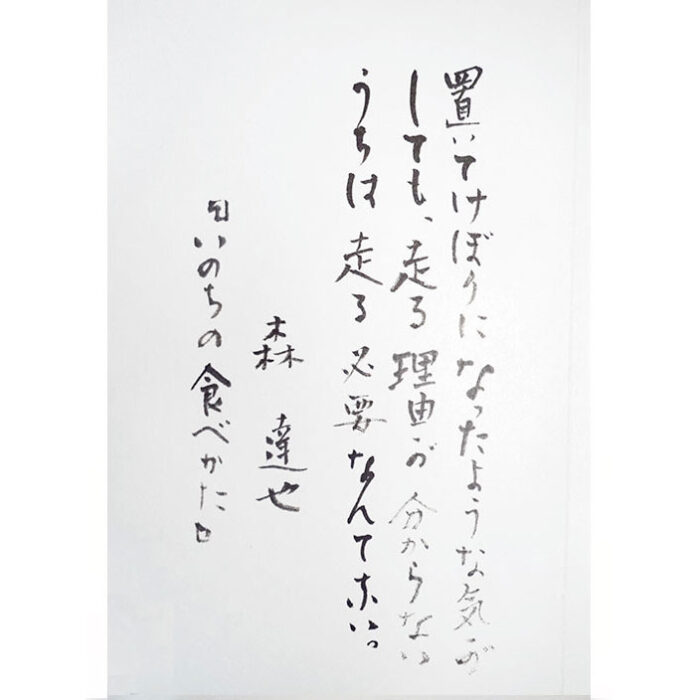 置いてけぼりになったような気が
しても、走る理由が分からない
うちは走る必要なんてない。
森 達也
『いのちの食べかた』